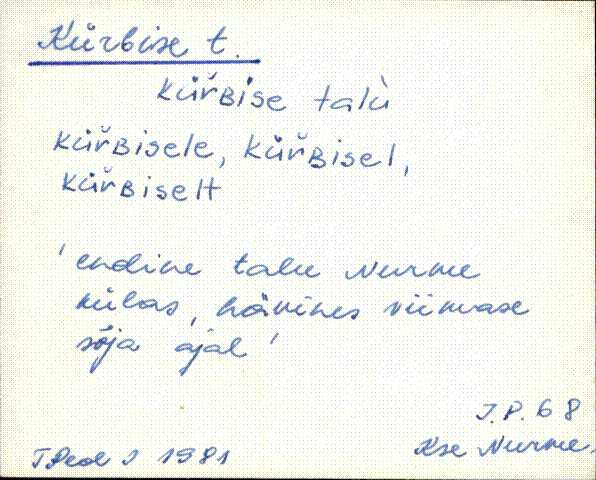 Kürbise t.
kürʙise talù
kürʙisele, kürʙisel,
kürʙiselt
'endine talu Nurme
külas, hävines viimase
sõja ajal'
J.P. 68
Kse Nurme.
1981